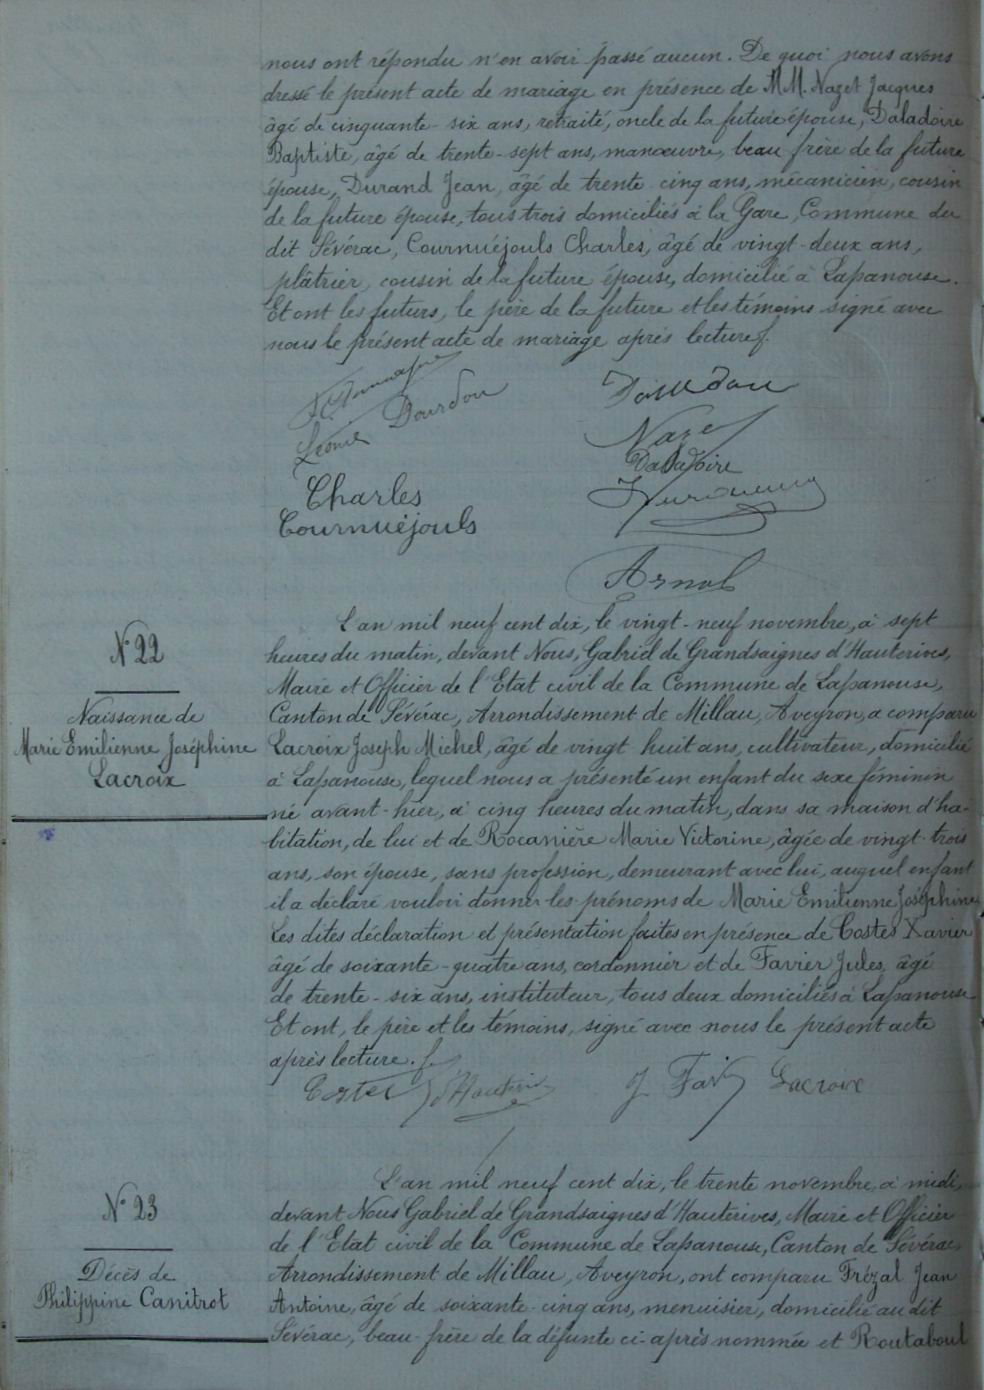 nous ont répondu n'en avoir passé aucun. De quoi nous avons
dressé le présent acte de mariage en présence de MM. Nazet Jacques
âgé de cinquante-six ans, retraité, oncle de la future épouse, Daladoire
Baptiste, âgé de trente-sept ans, manœuvre, beau frère de la future
épouse, Durand Jean, âgé de trente cinq ans, mécanicien, cousin
de la future épouse, tous trois domiciliés à la Gare, Commune du
dit Sévérac, Cournuéjouls Charles, âgé de vingt-deux ans,
plâtrier, cousin de la future épouse, domicilié à Lapanouse.
Et ont les futurs, le père de la future et les témoins signé avec
nous le présent acte de mariage après lecture.
Dourdou
Léonie Dourdou
Naze
Daladoire
Charles
Cournuéjouls
Arnal
L'an mil neuf cent dix, le vingt-neuf novembre, à sept
N° 22
heures du matin, devant Nous, Gabriel de Grandsaignes d'Hauterives,
Maire et Officier de l'Etat civil de la Commune de Lapanouse,
Naissance de
Canton de Sévérac, Arrondissement de Millau, Aveyron, a comparu
Marie Emilienne Joséphine
Lacroix Joseph Michel, âgé de vingt huit ans, cultivateur, domicilié
Lacroix
à Lapanouse, lequel nous a présenté un enfant du sexe féminin
né avant-hier, à cinq heures du matin, dans sa maison d'ha-
bitation, de lui et de Rocanière Marie Victorine, âgée de vingt-trois
ans, son épouse, sans profession, demeurant avec lui, auquel enfant
il a déclaré vouloir donner les prénoms de Marie Emilienne Joséphine
Les dites déclaration et présentation faites en présence de Costes Xavier
âgé de soixante-quatre ans, cordonnier et de Favier Jules, âgé
de trente-six ans, instituteur, tous deux domiciliés à Lapanouse
Et ont, le père et les témoins, signé avec nous le présent acte
après lecture.
Costes d'Hauterives J Favier Lacroix
L'an mil neuf cent dix, le trente novembre, à midi,
N° 23
devant Nous Gabriel de Grandsaignes d'Hauterives, Maire et Officier
de l'Etat civil de la Commune de Lapanouse, Canton de Sévérac
Décès de
Arrondissement de Millau, Aveyron, ont comparu Frézal Jean
Philippine Canitrot
Antoine, âgé de soixante-cinq ans, menuisier, domicilié au dit
Sévérac, beau-frère de la défunte ci-après nommée et Routaboul